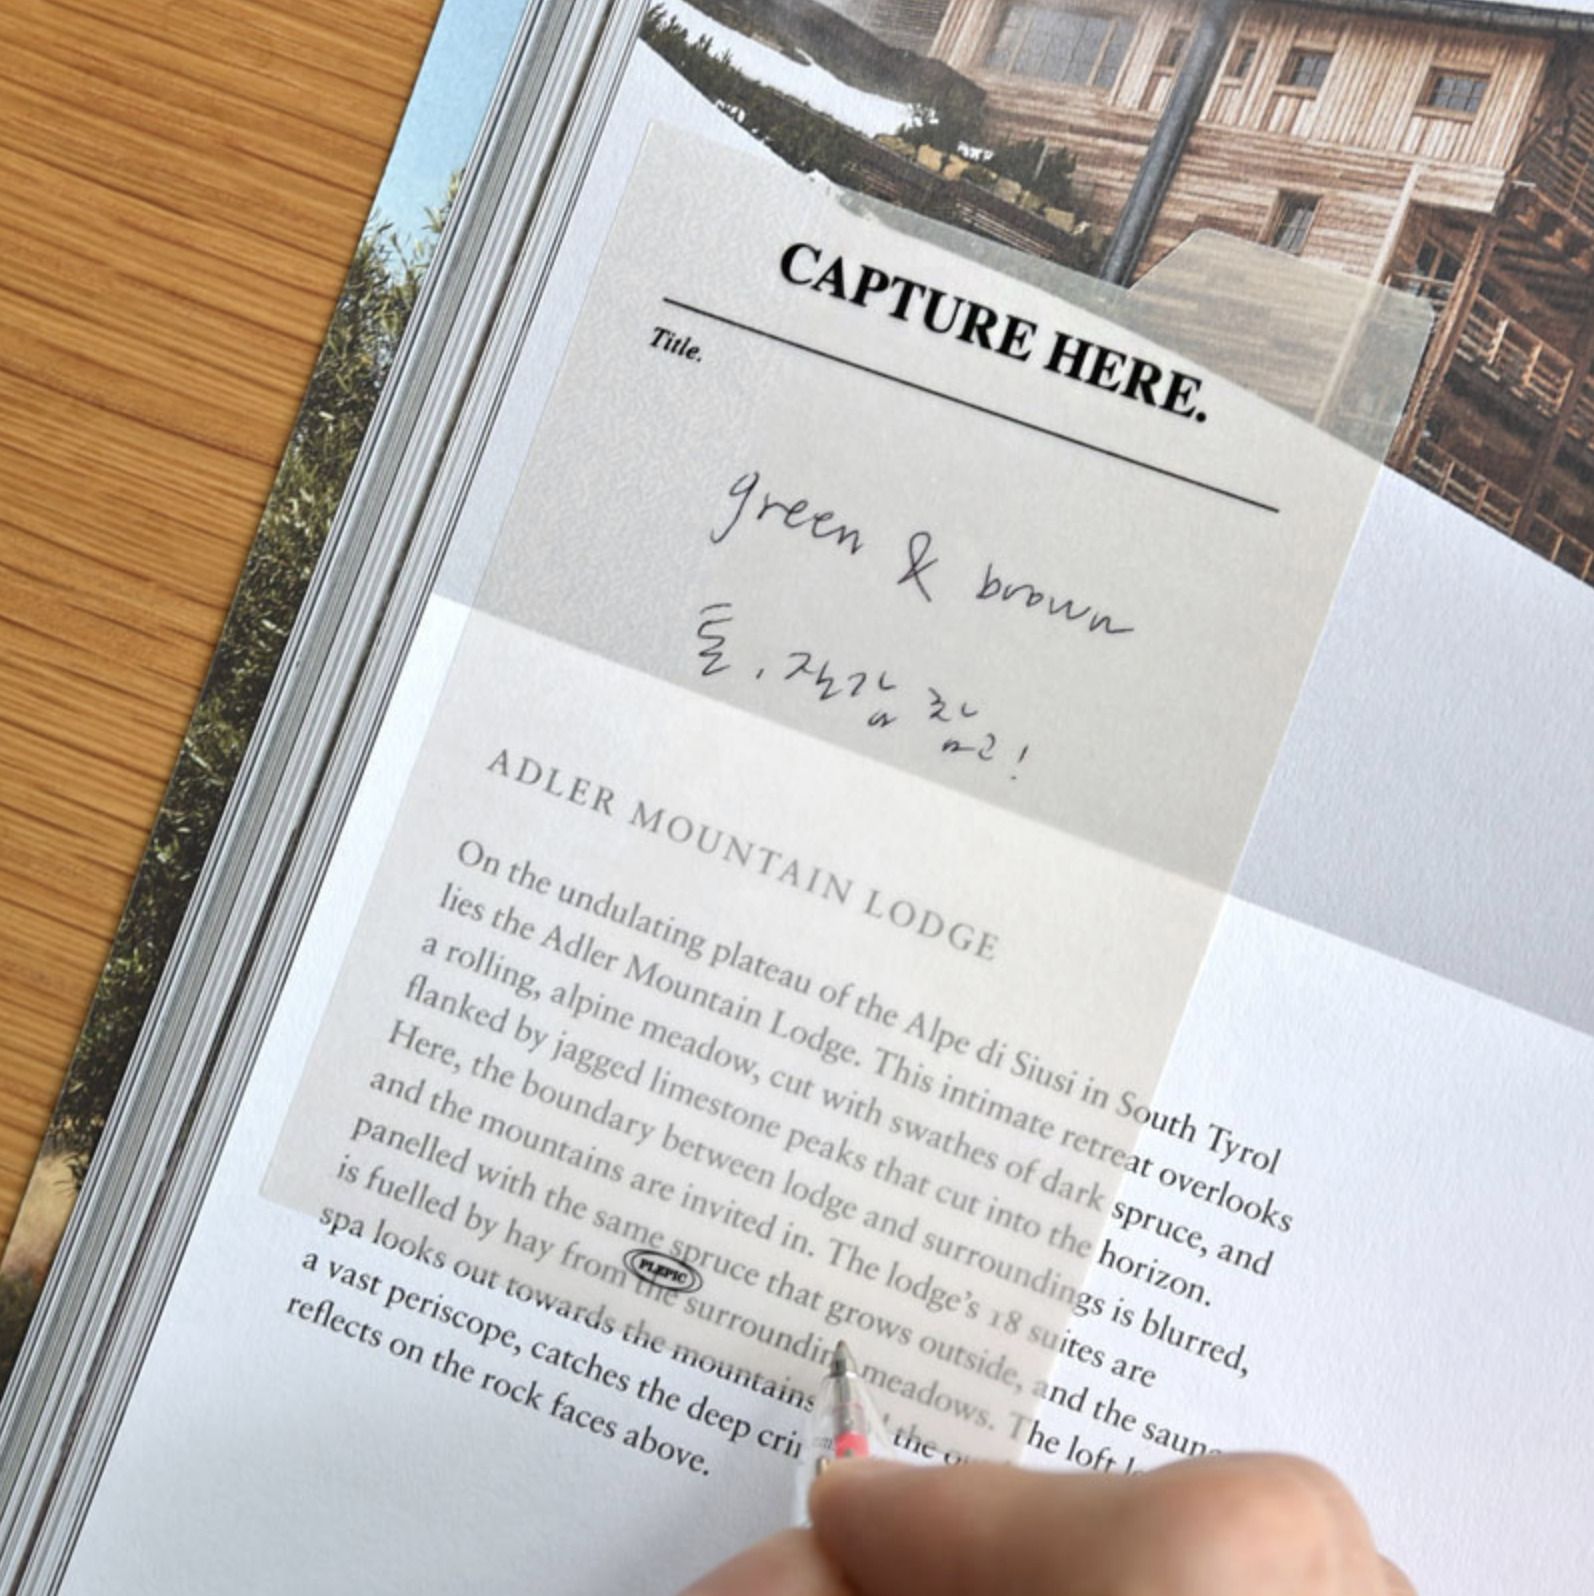 CAPTURE HERE.
Title.
green & brown
톤, 잔감 참고!
ADLER MOUNTAIN LODGE
On the undulating plateau of the Alpe di Siusi in South Tyrol
lies the Adler Mountain Lodge. This intimate retreat overlooks
a rolling, alpine meadow, cut with swathes of dark spruce, and
flanked by jagged limestone peaks that cut into the horizon.
Here, the boundary between lodge and surroundings is blurred,
and the mountains are invited in. The lodge's 18 suites are
panelled with the same spruce that grows outside, and the sauna
is fuelled by hay from the surrounding meadows. The loft
spa looks out towards the mountains the
a vast periscope, catches the deep
reflects on the rock faces above.
PLEPIC